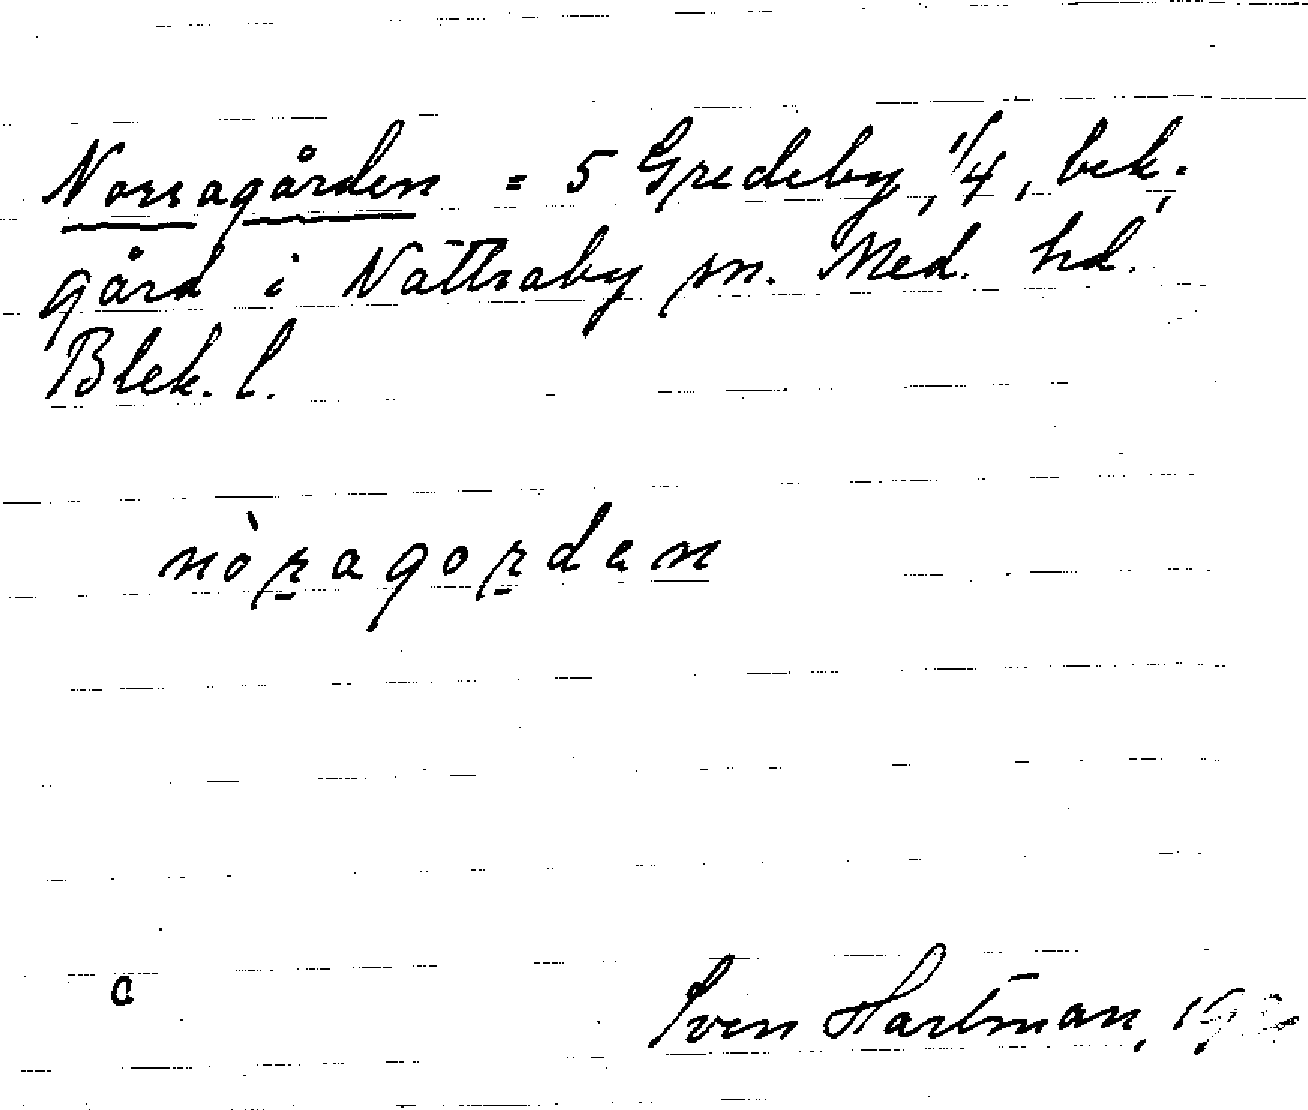 Norragården = 5 Gredeby, 1/4, bek.
gård i Nättraby sn. Med. hd.
Blek. l.
nòragorden
a
Sven Hartman,